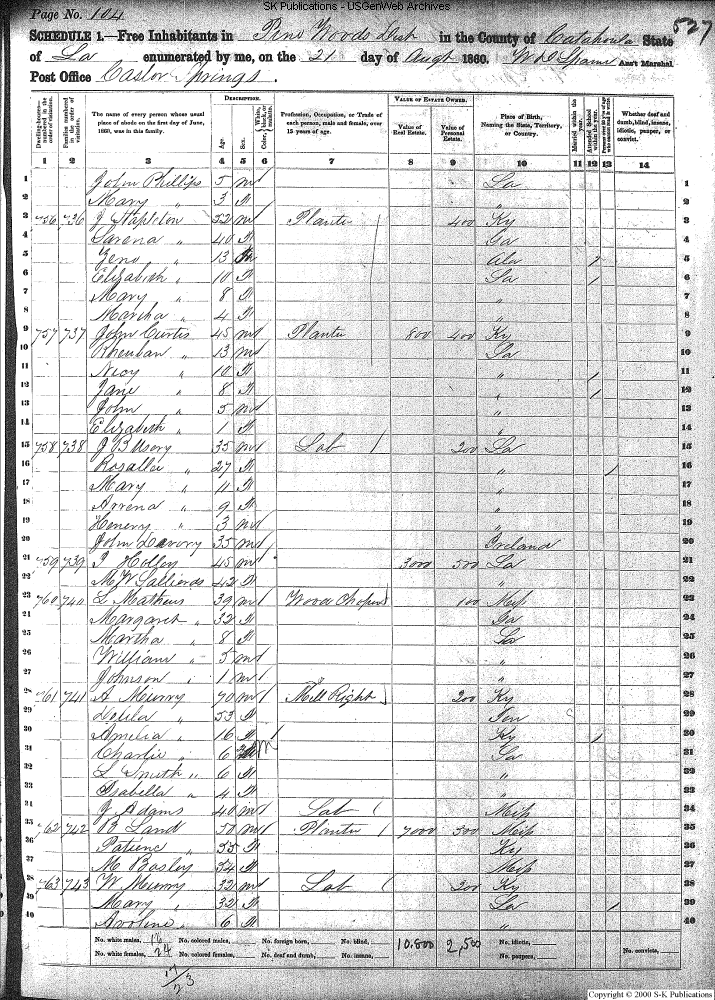 SK Publications - USGenWeb Archives
Page No. 104
527
SCHEDULE 1.—Free Inhabitants in Pine Woods Dist in the County of Catahoula State
of La enumerated by me, on the 21 day of Augt 1860. Ass't Marshal
Post Office Castor Springs.
DESCRIPTION. VALUE OF ESTATE OWNED.
Dwelling-houses—numbered in the order of visitation. Families numbered in the order of visitation. The name of every person whose usual place of abode on the first day of June, 1860, was in this family. Age. Sex. Color, Profession, Occupation, or Trade of each person, male and female, over 15 years of age. Value of Real Estate. Value of Personal Estate. Place of Birth, Naming the State, Territory, or Country. Married within the year. Attended School within the year. Whether deaf and dumb, blind, insane, idiotic, pauper, or convict.
1 2 3 4 5 6 7 8 9 10 11 12 13 14
1 John Phillips 5 m La 1
2 Mary " 3 f " 2
3 756 736 J Stapleton 52 m Planter 400 Ky 3
4 Sarena " 40 f Ga 4
5 Zeno " 13 Ala / 5
6 Elizabeth " 10 f La / 6
7 Mary " 8 f " 7
8 Martha " 4 f " 8
9 757 737 John Curtis 45 m Planter 800 400 Ky 9
10 Rheuban " 13 m La 10
11 " 10 f " / 11
12 Jane " 8 f " / 12
13 John " 5 m " 13
14 Elizabeth " 1 f " 14
15 758 738 J B Usery 35 m Lab 200 La 15
16 Rosallie " 27 f " / 16
17 Mary " 11 f " 17
18 Arrena " 9 f " 18
19 Henery " 3 m " 19
20 John 35 m Ireland 20
21 759 739 Holley 45 m 3000 500 La 21
22 M W 42 f " 22
23 760 740 L Matheus 39 m Wood Choper 100 Miss 23
24 Margaret " 32 f Ga 24
25 Martha " 8 f La 25
26 William " 5 m " 26
27 Johnson " 1 m " 27
28 761 741 A Murry 70 m Mill Right 200 Ky 28
29 Delila " 53 f Ten 29
30 Amelia " 16 f Ky / 30
31 Charlie " 6 m La 31
32 L Smith " 6 f " 32
33 Isabella " 4 f " 33
34 J Adams 40 m Lab Miss 34
35 762 742 B Land 50 m Planter 7000 300 Miss 35
36 Patienc " 55 f Ky 36
37 M Basley 54 f Miss 37
38 763 743 W Murry 32 m Lab 200 Ky 38
39 Mary " 32 f La / 39
40 " 6 f " 40
No. white males, 16 No. colored males, No. foreign born, No. blind, 10.800 2,500 No. idiotic,
No. white females, 24 No. colored females, No. deaf and dumb, No. insane, No. paupers, No. convicts,
17/23
Copyright © 2000 S-K Publications